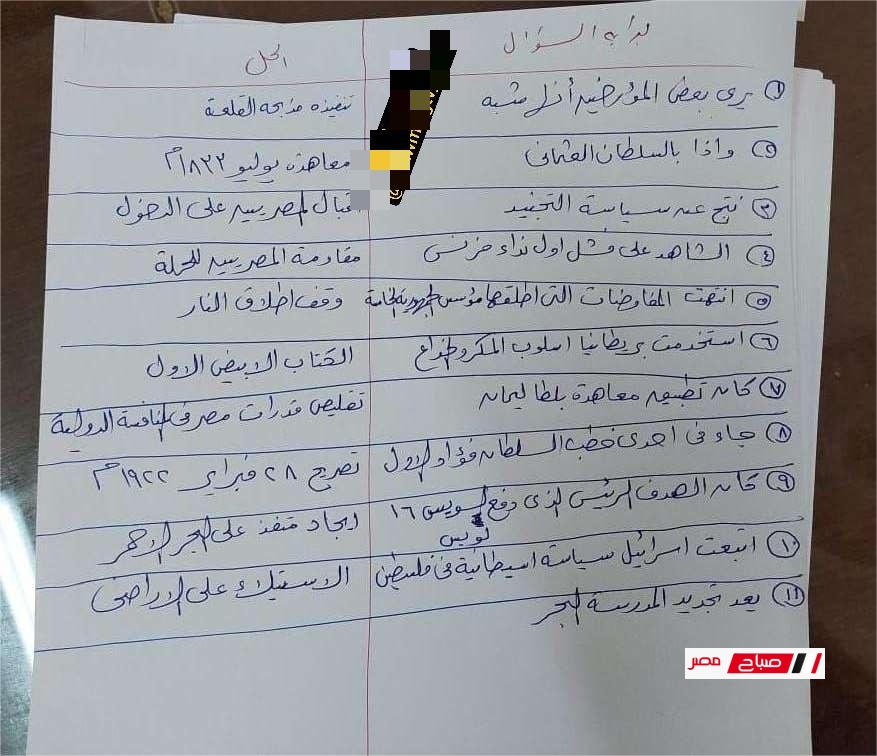 بداية السؤال	الحل
① يرى بعض المؤرخين أن	تنفيذه مذبحة القلعة
② واذا بالسلطان العثمانى	معاهدة يوليو ١٨٣٣م
③ نتج عن سياسة التجنيد	المصريين على الدخول
④ الشاهد على فشل اول نداء فرنسى	مقاومة المصريين للحملة
⑤ انتهت المفاوضات التى اطلقها مؤسس الجمهورية الخامسة	وقف اطلاق النار
⑥ استخدمت بريطانيا اسلوب المكر والخداع	الكتاب الابيض الاول
⑦ كان تطبيق معاهدة بلطا ليمان	تقليص قدرات مصر فى المنافسة الدولية
⑧ جاء فى احدى خطب السلطان فؤاد الاول	تصريح ٢٨ فبراير ١٩٢٢م
⑨ كان الهدف الرئيس الذى دفع لويس ١٦	ايجاد منفذ على البحر الاحمر
لويس
⑩ اتبعت اسرائيل سياسة اسيطانية فى فلسطين	الاستيلاء على الاراضى
⑪ يعد تجديد المدرسة البحر
صباح مصر